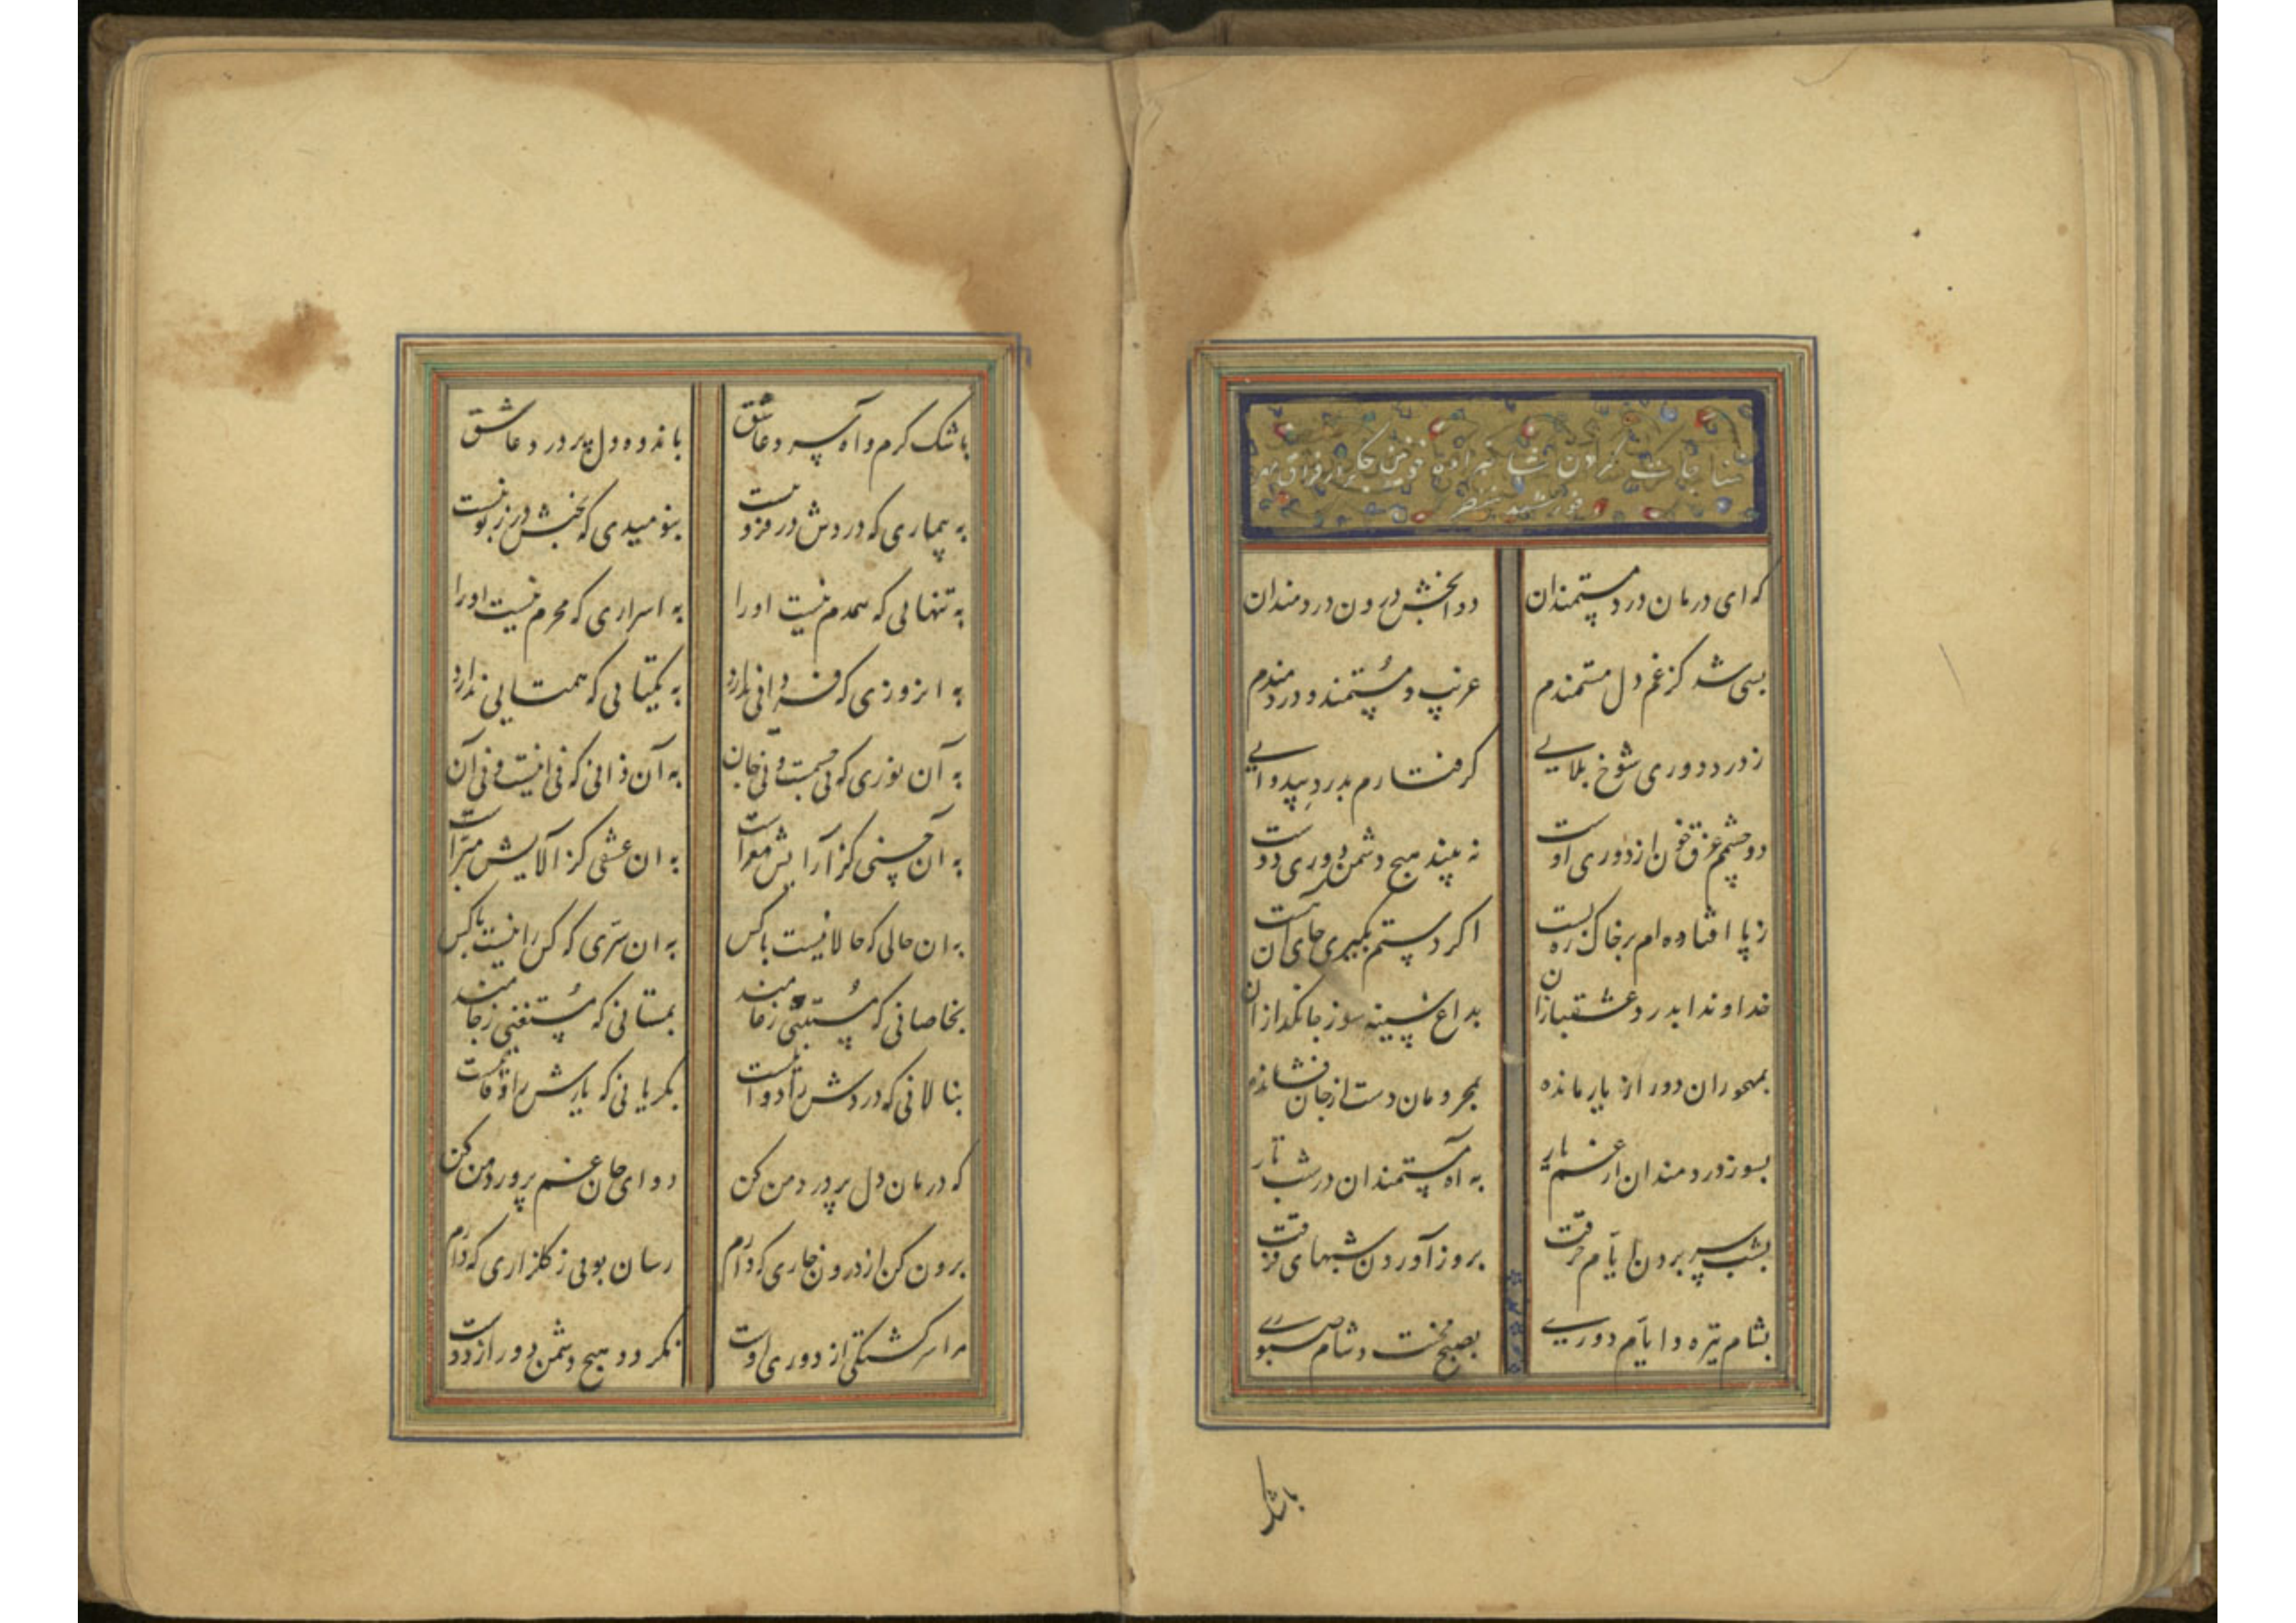 مناجات کردن شاهزاده خونین جگر از فراق
خورشید
که ای درمان درد مستمندان دوا بخش درون دردمندان
بسی شد کز غم دل مستمندم غریب و مستمند و دردمندم
ز درد دوری شوخ بلایی گرفتارم بدرد بیدوایی
دو چشمم غرق خون از دوری اوست نه بیند هیچ دشمن دوری دوست
ز پا افتاده‌ام بر خاک ره پست اگر دستم بگیری جای آن است
خداوندا بدرد عشقبازان بداغ سینه سوز جانگدازان
بمهجوران دور از یار مانده بمحرومان دست از جان فشانده
بسوز دردمندان از غم یار به آه مستمندان در شب تار
بشب بردن ایام حرقت بروز آوردن شبهای فرقت
بشام تیره و ایام دوری بصبح محنت و شام صبوری
باشک
باشک گرم و آه سرد عاشق باندوه دل پر درد عاشق
به بیماری که دردش در فزونست بنومیدی که بختش در زبونست
به تنهایی که همدم نیست او را به اسراری که محرم نیست او را
به امروزی که فردایی ندارد به یکتایی که همتایی ندارد
به آن نوری که نی جسمست و نی جان به آن ذاتی که نی اینست و نی آن
به آن حسنی کز آرایش معراست به ان عشقی کز آلایش مبراست
به ان حالی که حالا نیست با کس به ان سری که کس را نیست با کس
بخاصانی که زمانند بمستانی که مستغنی ز جامند
بنالانی که دردش را دوا نیست بگریانی که یارش را وفا نیست
که درمان دل پر درد من کن دوای جان غم پرورد من کن
برون کن از درون خاری که دارم رسان بویی ز گلزاری که دارم
مرا سرگشتگی از دوری اوست نگردد هیچ دشمن دور از دوست